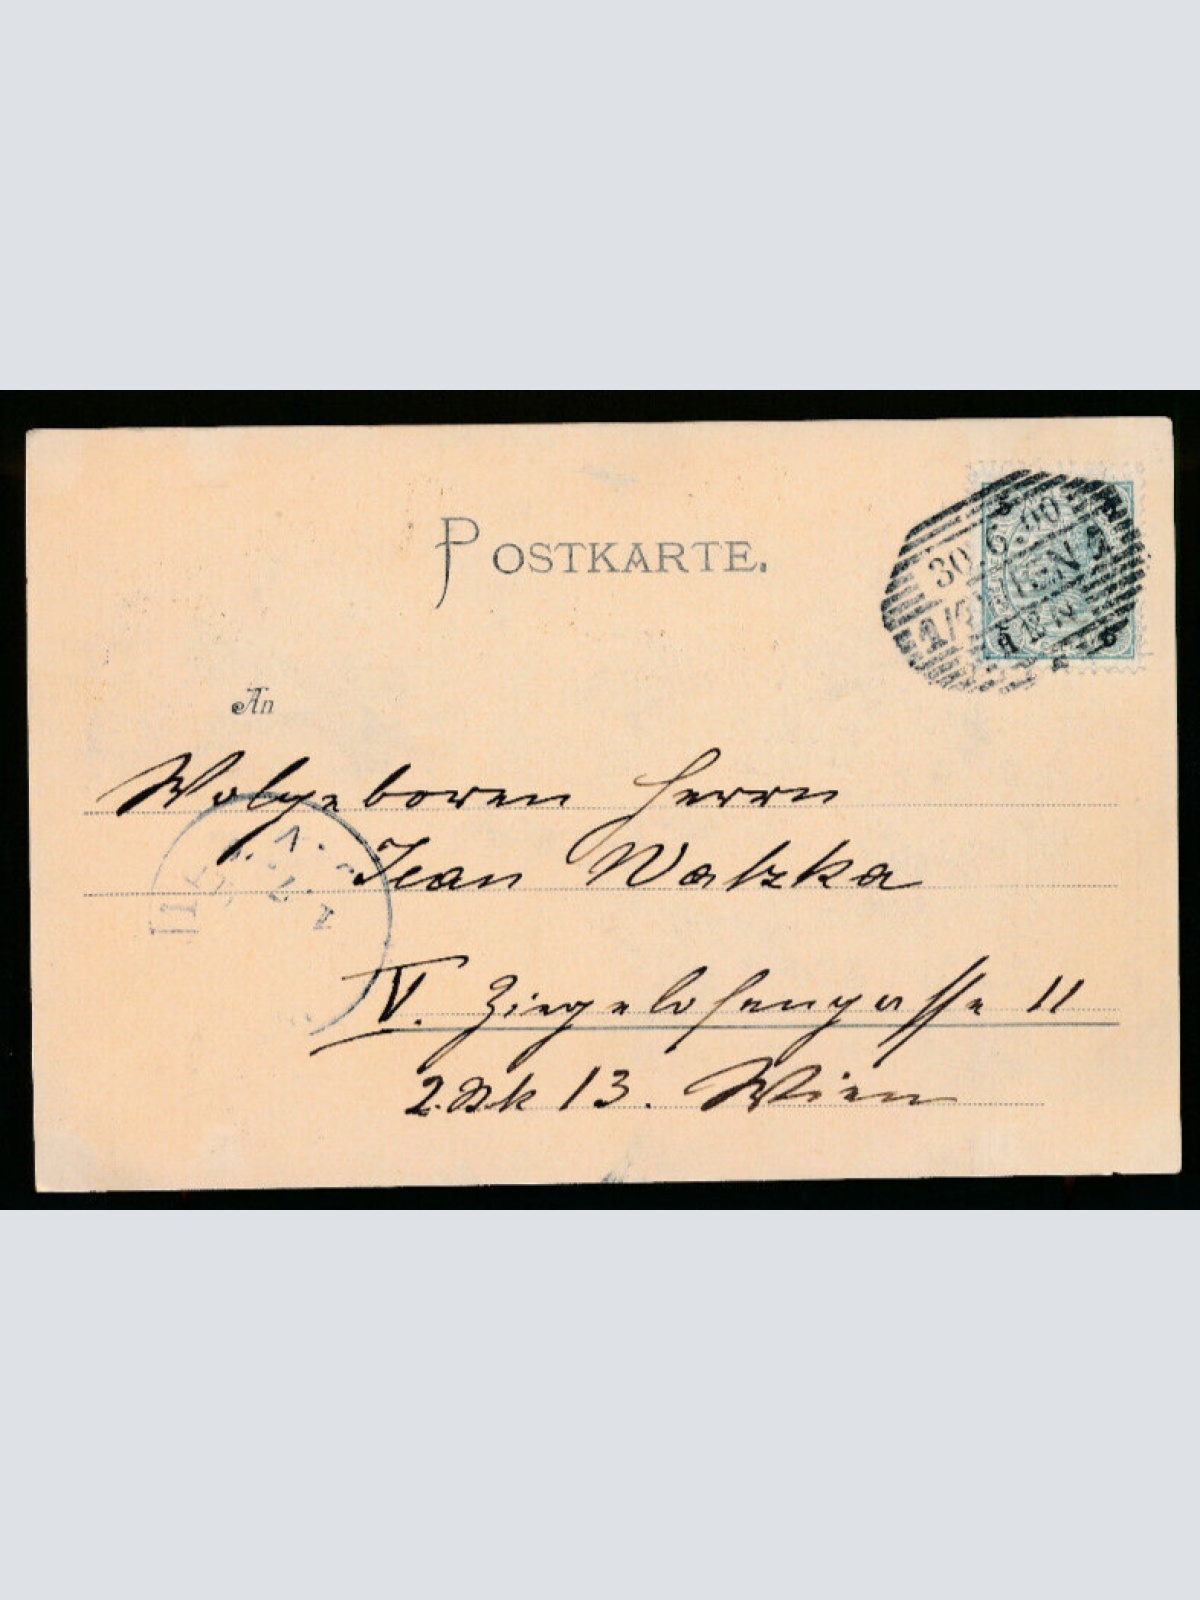 POSTKARTE.
30 6.00
1/1
An
Wolgeboren Herrn
Jean Watzka
IV. Ziegelofengasse 11
2. Stk 13. Wien